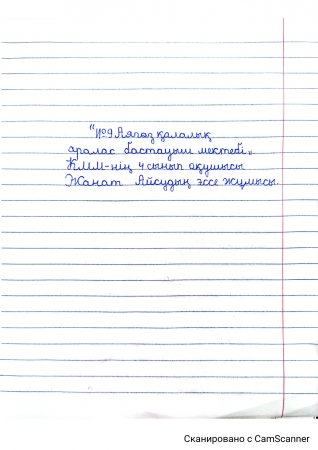 "№9 Аягөз қалалық
аралас бастауыш мектебі„
КММ-нің 4 сынып оқушысы
Жанат Айсудың эссе жұмысы.
Сканировано с CamScanner